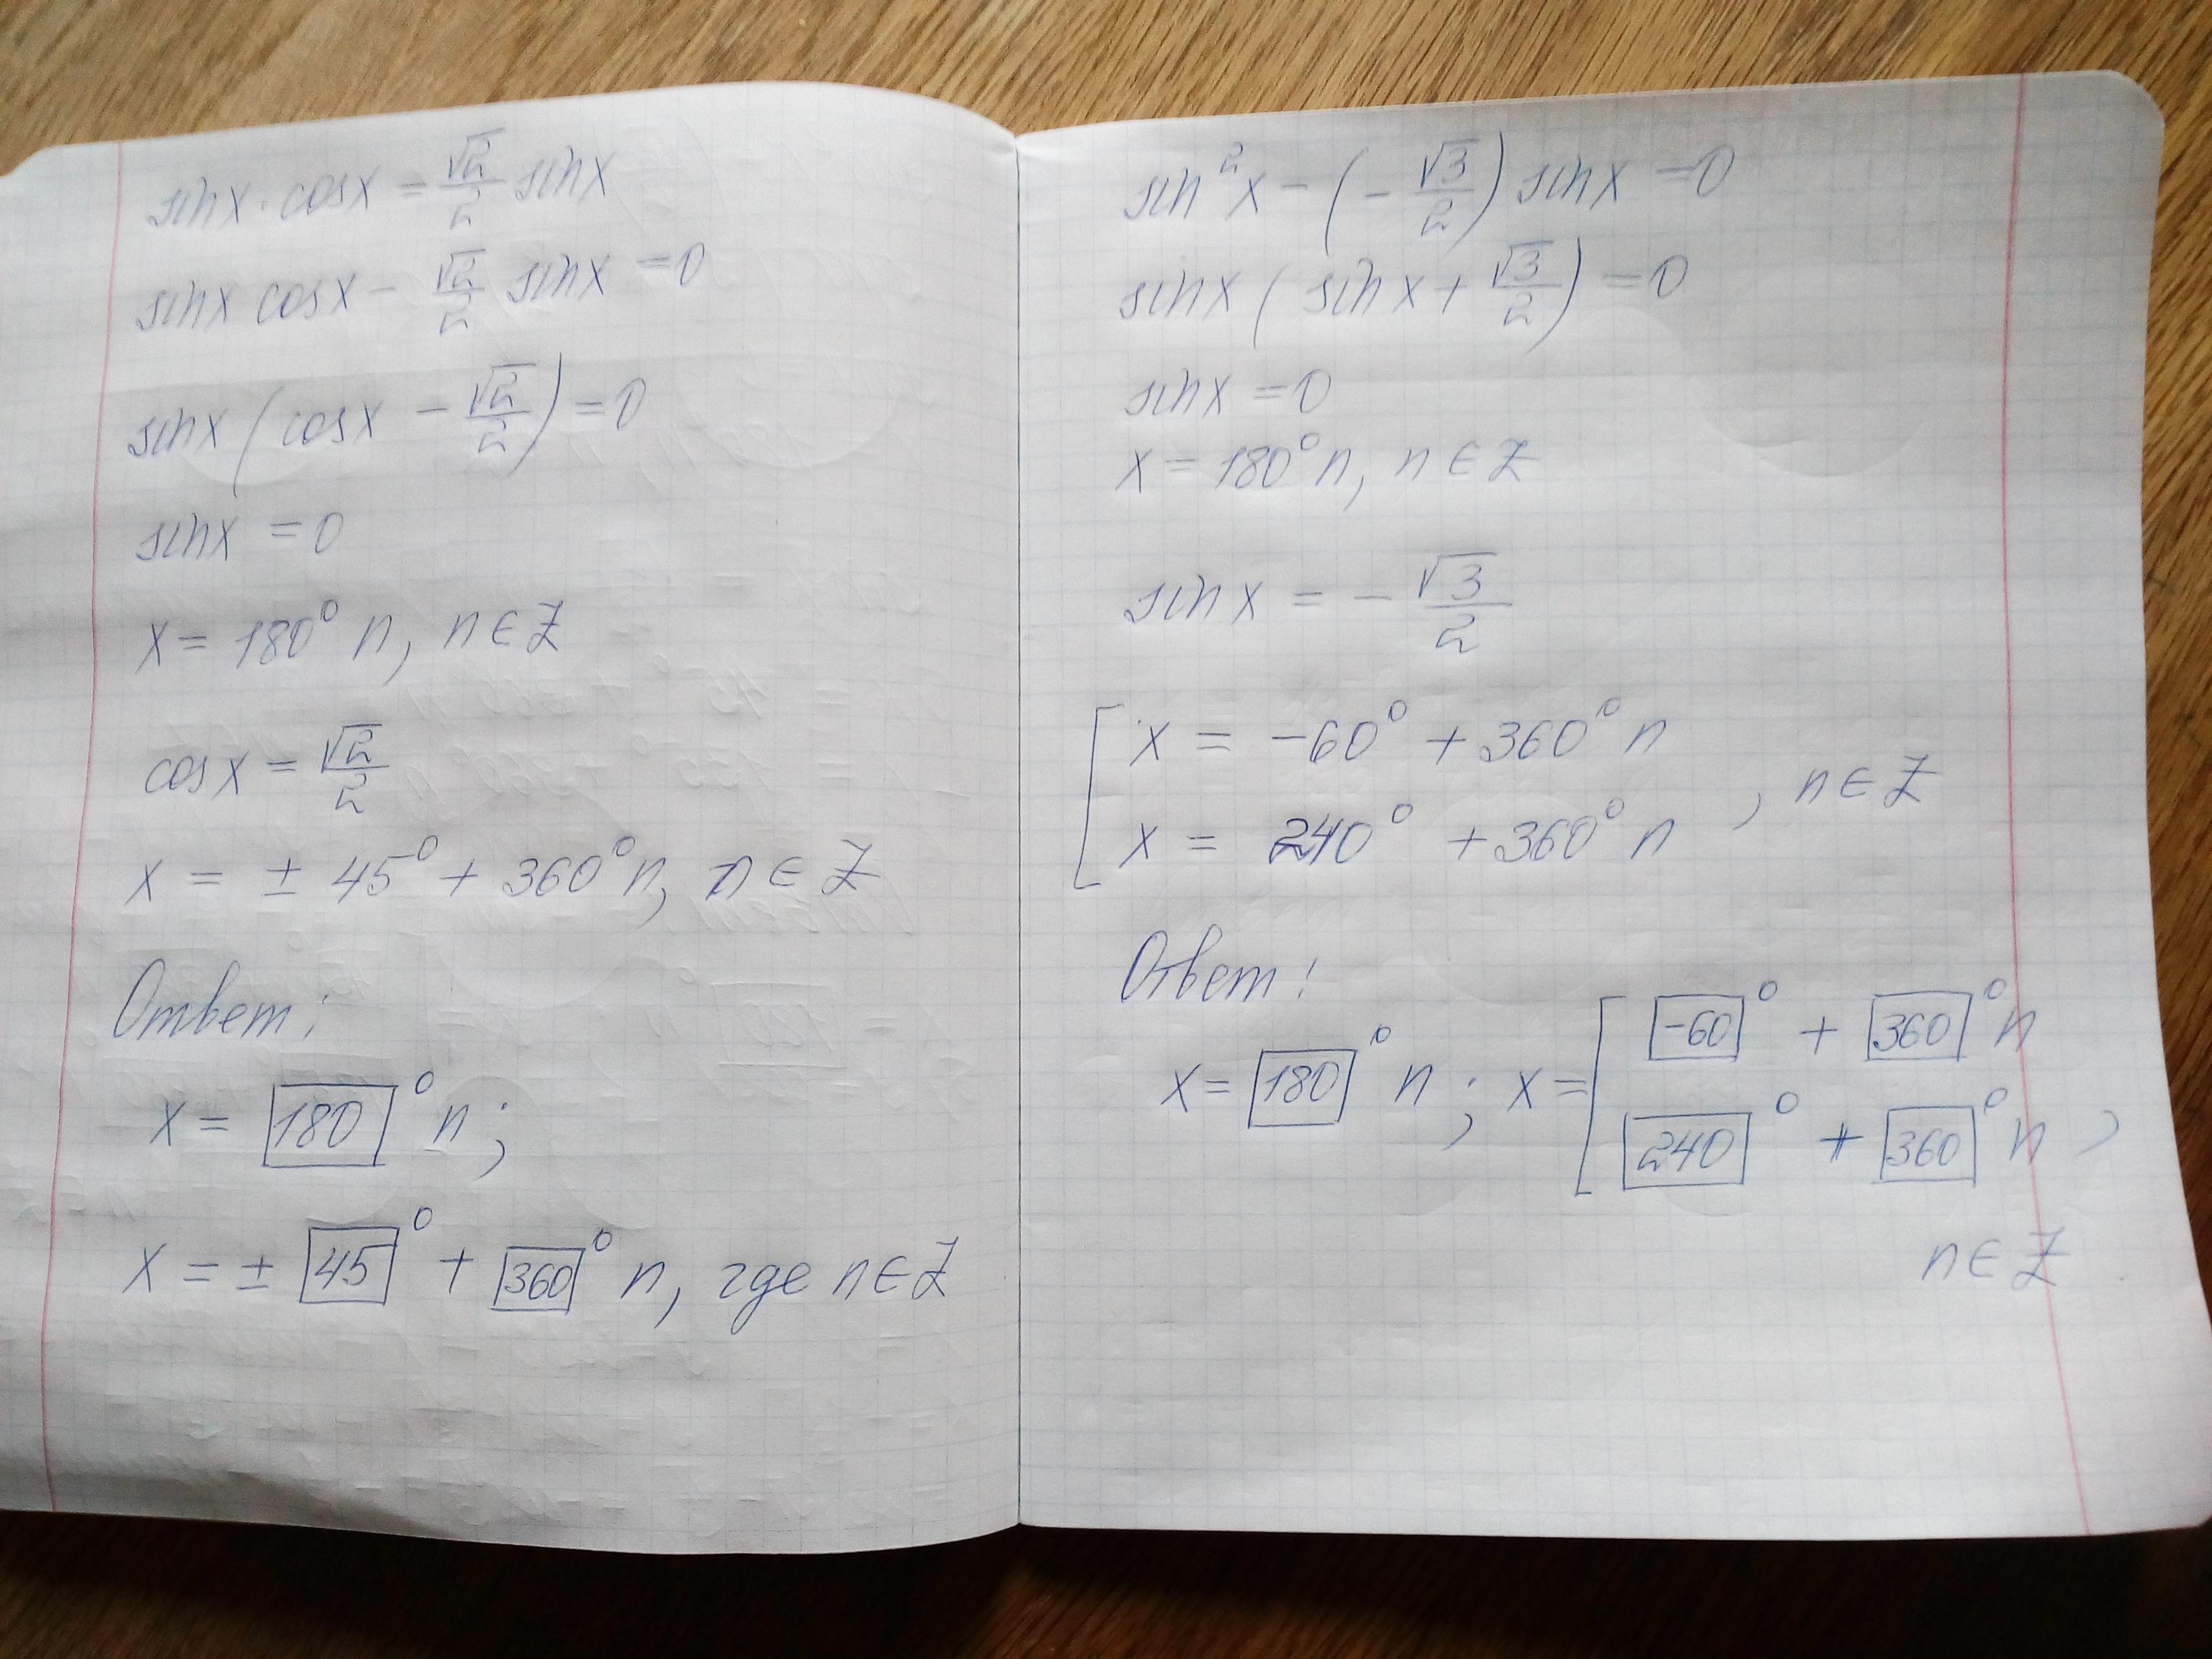 sinx · cosx = √2/2 sinx
sinx cosx - √2/2 sinx = 0
sinx (cosx - √2/2) = 0
sinx = 0
x = 180° n, n ∈ Z
cosx = √2/2
x = ± 45° + 360° n, n ∈ Z
Ответ:
x = 180° n;
x = ± 45° + 360° n, где n ∈ Z
sin²x - (- √3/2) sinx = 0
sinx (sinx + √3/2) = 0
sinx = 0
x = 180° n, n ∈ Z
sinx = - √3/2
[ x = -60° + 360° n
x = 240° + 360° n , n ∈ Z
Ответ:
x = 180° n ; x = [ -60° + 360° n
240° + 360° n ,
n ∈ Z